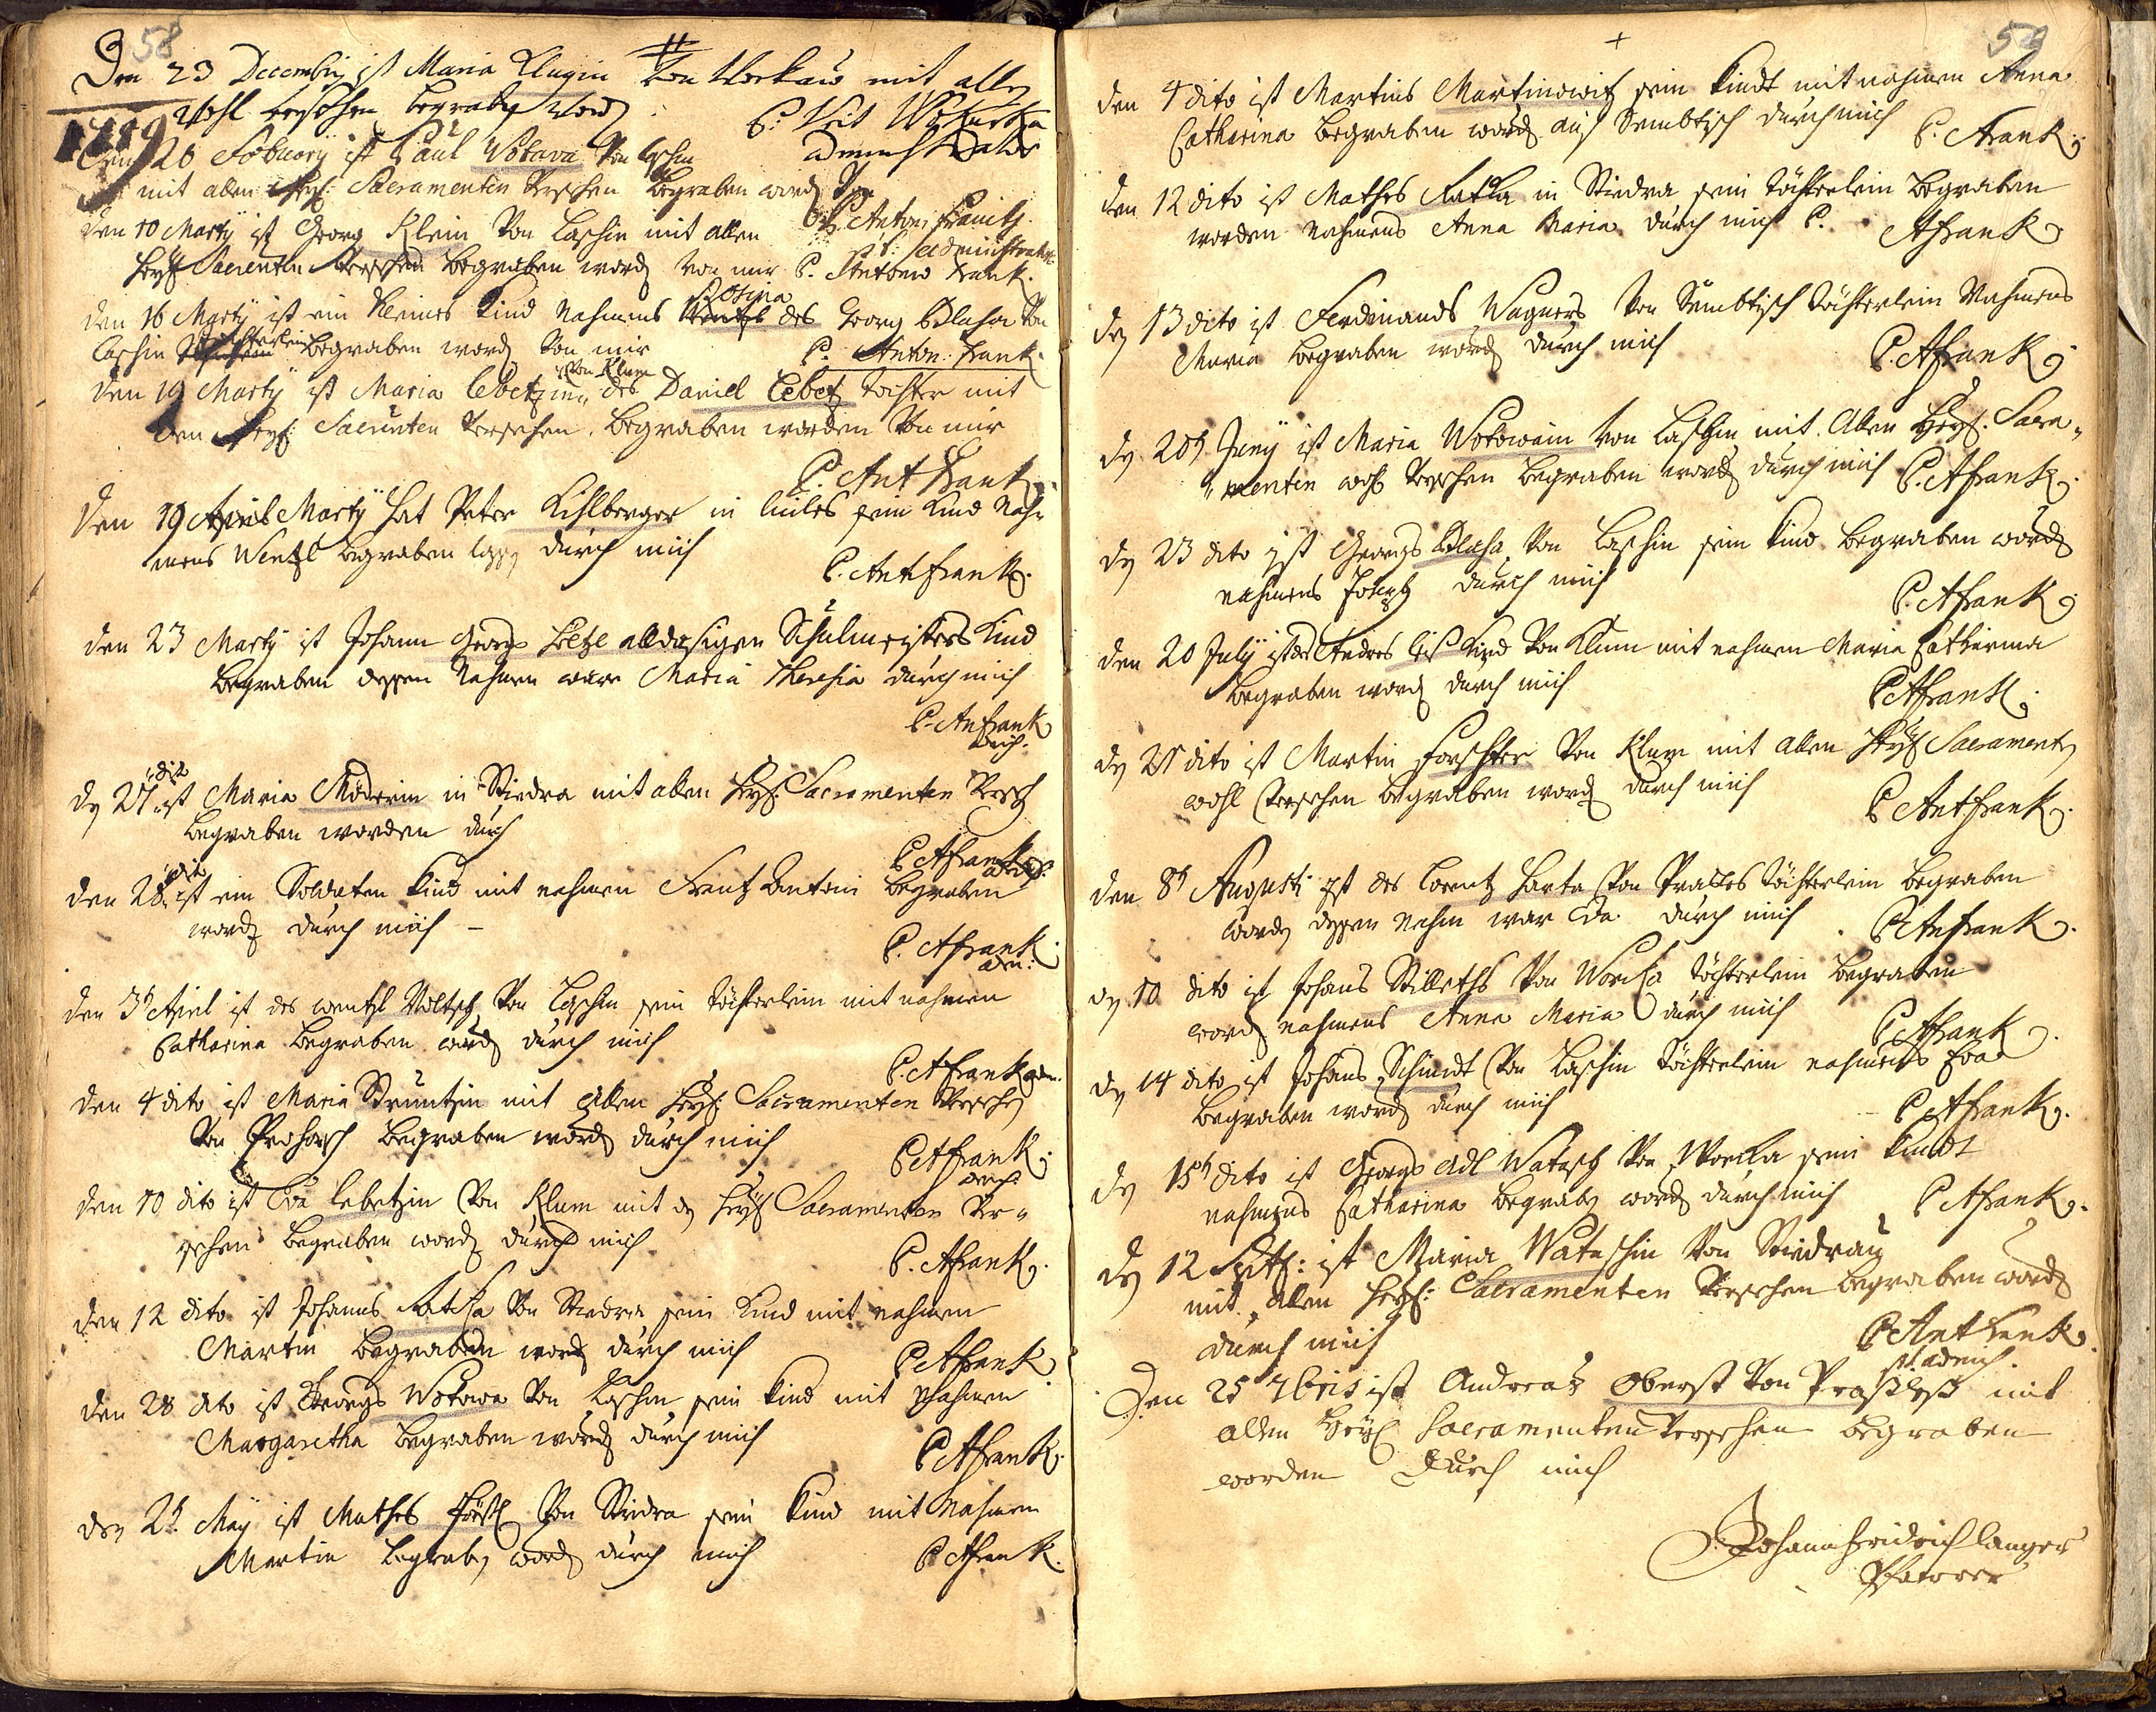 58
Den 23 Decembris ist Maria Klugin von Workaw mit allen
wohl versehen begraben word
P: Veit
Administrator
1719
Den 26 Februarÿ ist Paul Wokava von Laschin
mit allen Heyl: Sacramenten versehen begraben word
P. Anton Franckh
p.t. Administrator
den 10 Martÿ ist Georg Klein von Laschin mit allen
Heyl Sacrenten versehen begraben word von mir P. Antonio Frank.
den 16 Martÿ ist ein kleines Kind nahmens Rosina des Georg Blaha von
Laschin töchterlein begraben word von mir
P. Anton. Frank.
den 19 Martÿ ist Maria Lebetzin von Klum des Daniel Lebetz tochter mit
den Heyl: Sacrmten versehen, begraben worden von mir
P. Ant Frank.
den 19 April Martÿ hat Peter Kihlberger in sein Kind nah-
mens Wentzl begraben lassen durch mich
P. Ant frank.
den 23 Martÿ ist Johann Georg alldasigen Schulmeisters Kind
begraben dessen Nahmen ware Maria Theresia durch mich
P. An frank
adm.
den 27 dit ist Maria Moderin in Stiedra mit allen Heyl: Sacramenten vers
begraben worden durch
P. Afrank
den 28 dit ist ein Soldaten Kind mit nahmen Frantz Antoni begraben
word durch mich -
P. Afrank.
adm:
den 3t April ist des wentzl Woltsch von Laschin sein töchterlein mit nahmen
Catharina begraben word durch mich
P. A frank adm.
den 4 dito ist Maria Struntzin mit allen Heyl: Sacramenten versehen
von Prohorsch begraben word durch mich
P A frank.
adm.
den 10 dito ist Eva Lebetzin von Klum mit den Heyl Sacramenten ver-
sehen begraben word durch mich
P. Afrank.
den 12 dito ist Johanns Ratka von Stiedra sein Kind mit nahmen
Martin begraben word durch mich
P Afrank
den 28 dito ist Georgs Wokowa von Laschin sein Kind mit Nahmen
Margaretha begraben word durch mich
P Afrank.
den 2t. Maÿ ist Mathes von Stiedra sein Kind mit Nahmen
Martin begraben word durch mich
P Afrank.
59
den 4 dito ist Martins Martinowitz sein Kindt mit nahmen Anna
Catharina begraben word aus Sembtisch durch mich
P. Frank.
den 12 dito ist Mathes Ratka in Stiedra sein töchterlein begraben
worden nahmens Anna Maria durch mich P. Afrank
den 13 dito ist Ferdinands Wagners von Sembtisch töchterlein Nahmens
Maria begraben word durch mich
P. Afrank.
den 20t Junÿ ist Maria Wokowain von Laschin mit allen Heyl. Sacra-
menten wohl versehen begraben word durch mich P. Afrank.
den 23 dito ist Georgs Blaha von Laschin sein Kind begraben word
nahmens Joseph durch mich
P. Afrank.
den 20 Julÿ ist des Andres Kind von Klum mit nahmen Maria Catharina
begraben word durch mich
P Afrank.
den 25 dito ist Martin Forschter von Klum mit allen Heyl Sacramenten
wohl versehen begraben word durch mich
P Ant frank.
den 8t Augusti ist des Lorentz Harta von Pralles töchterlein begraben
worden dessen Nahm war Eva durch mich
P An frank.
den 10 dito ist Johans Stilleths von Worka töchterlein begraben
word nahmens Anna Maria durch mich
P Afrank.
den 14 dito ist Johans Schmidt von Laschin töchterlein nahmens Eva
begraben word durch mich
P Afrank.
den 15t dito ist Georgs Adl Watasch von Worka sein Kindt
nahmens Catharina begraben word durch mich
P Afrank.
den 12 Septb: ist Maria Wataschin von Stiedra
mit allen Heyl: Sacramenten versehen begraben word
durch mich
P Ant Frank.
p.t. adm.
Den 25 7bris ist Andreas Oberst von Prasles mit
allen Heyl Sacramenten versehen begraben
worden durch mich
Johann Fridrich Langer
Pfarrer